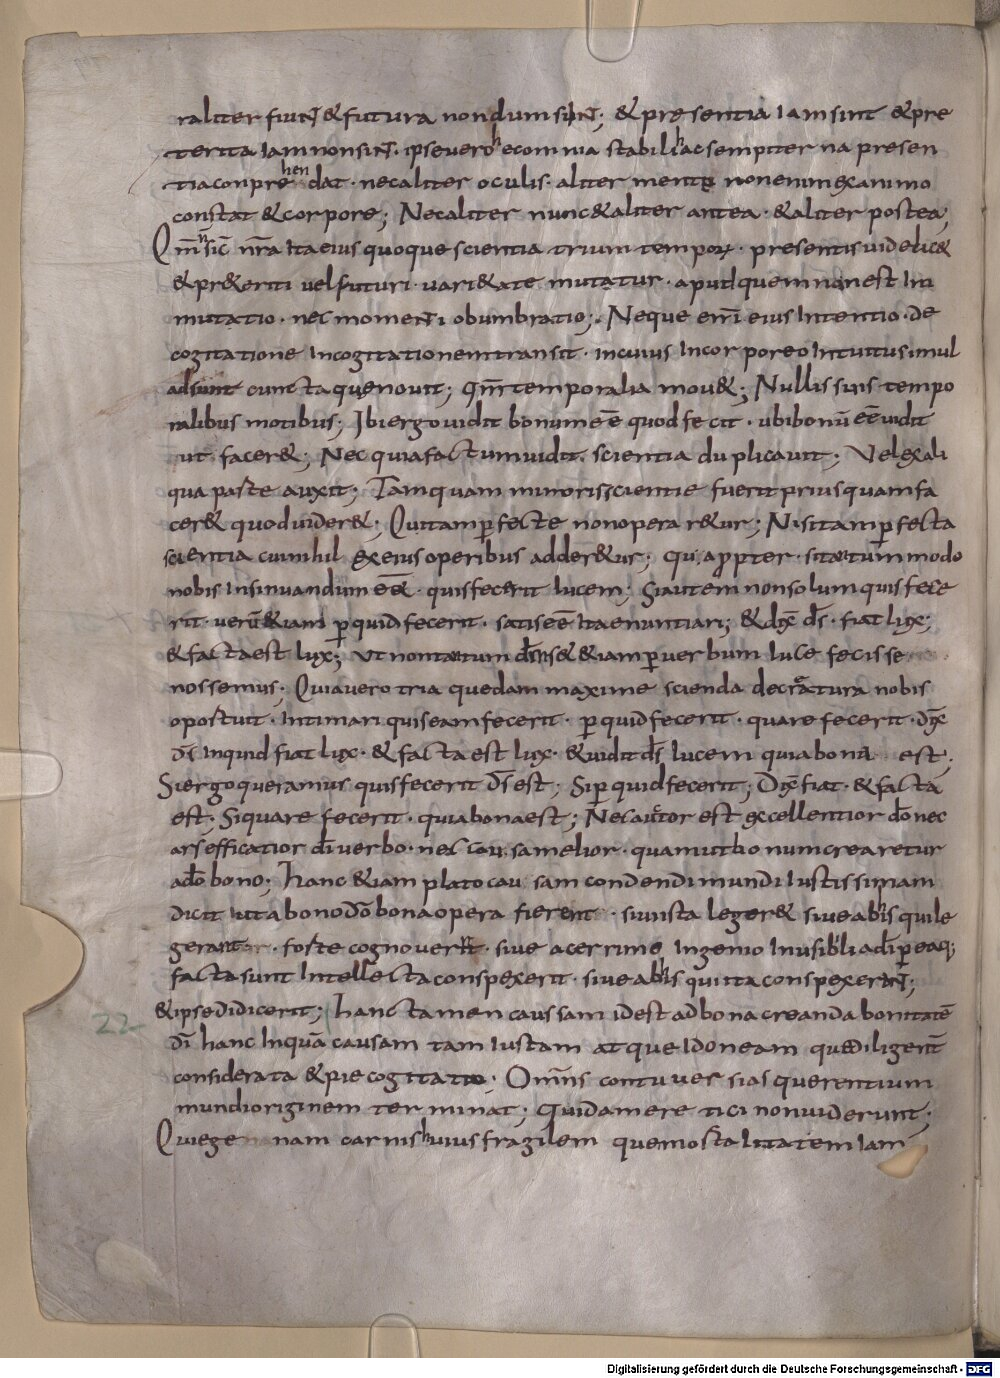 raliter fiuNt & futura nondum siNt; & presentia iam sint & pre
terita iam non siNt. ipse vero hec omnia stabili hac sempiterna presen
tia conprehendat. nec aliter oculis. aliter mente non enim ex animo
constat & corpore; Nec aliter nunc & aliter antea. & aliter postea;
Qm̄ n sic̄ nr̄a ita eius quoque scientia trium temporꝝ. presentis videlic&
& pr&eriti vel futuri. vari&ate mutatur. apud quem non est im
mutatio. nec momeNti obumbratio; Neque eni̅ eius intentio. de
cogitatione in cogitationem transit. in cuius incorporeo intuitu simul
adsunt cuncta que novit; Qm̄ tempora ita mov&; Nullis suis tempo
ralibus motibus; Ibi ergo vidit bonum ēē quod fecit. ubi bonū ēē vidit
ut facer&; Nec quia factum vidit. scientia duplicavit; Vel ex ali
qua parte auxit; Tamquam minoris scientie fuerit prius quam fa
cer& quod vider&; Qui tam ꝑfecte non operar&ur; Nisi tam ꝑfecta
scientia cui nihil ex eius operibus adder&ur; Qua ꝓpter. si tantum modo
nobis insinuandum ēē&. quis fecerit lucem; Si autem non solum quis fece
rit. verū &iam ꝑ quid fecerit. satis ēē ita enuntiari; & dix̄ d̄s. fiat lux;
& facta est lux; Ut non tantum d̄m s& &iam ꝑ verbum luce fecisse
nossemus; Quia vero tria quedam maxime scienda de creatura nobis
oportuit. intimari quis eam fecerit. ꝑ quid fecerit. quare fecerit. dix̄
d̄s inquid fiat lux. & facta est lux. & vidit d̄s lucem quia bona est;
Si ergo queramus quis fecerit d̄s est; Si ꝑ quid fecerit; Dix̄ fiat. & facta
est; Si quare fecerit. quia bona est; Nec auctor est excellentior dō nec
ars efficatior dī verbo. nec causa melior. quam ut bonum crearetur
a dō bono; Hanc &iam plato causam condendi mundi iustissimam
dicit ut a bono dō bona opera fierent. sive ista leger& sive ab his qui le
gerant. forte cognoverit. sive acerrime ingenio invisibilia dī ꝑ ea q;
facta sunt intellecta conspexerit. sive ab his qui ita conspexeraNt;
& ipse didicerit; Hanc tamen caussam id est ad bona creanda bonitatē
dī hanc inquā causam tam iustam atque idoneam que diligent̄
considerata & pie cogitata. Omn̄s contuversias querentium
mundi originem terminat; Quidam eretici non viderunt;
Qui ege nam carnis huius fragilem que mortalitatem iam
22
Digitalisierung gefördert durch die Deutsche Forschungsgemeinschaft - DFG